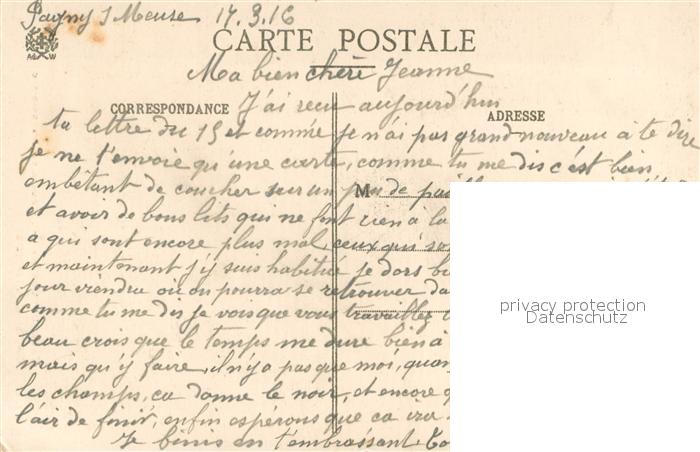 Pagny s/ Meuse 17.3.16
CARTE POSTALE
Ma bien chère Jeanne
CORRESPONDANCE
ADRESSE
J'ai recu aujourd'hui
ta lettre du 15 et comme je n'ai pas grand nouveau à te dire
je ne t'envoie qu'une carte, comme tu me dis c'est bien
embêtant de coucher sur un peu de
M
et avoir de bons lits qui ne font rien à la
a qui sont encore plus mal, ceux qui
et maintenant j'y suis habitué je dors
jour viendra où on pourra se retrouver
comme tu me dis je vois que vous travaillez
beau crois que le temps me dure bien à
mais qu'y faire, il n'y a pas que moi,
les champs, ca donne le noir, et encore
l'air de finir, enfin espérons que ca ira
Je finis en t'embrassant
privacy protection
Datenschutz